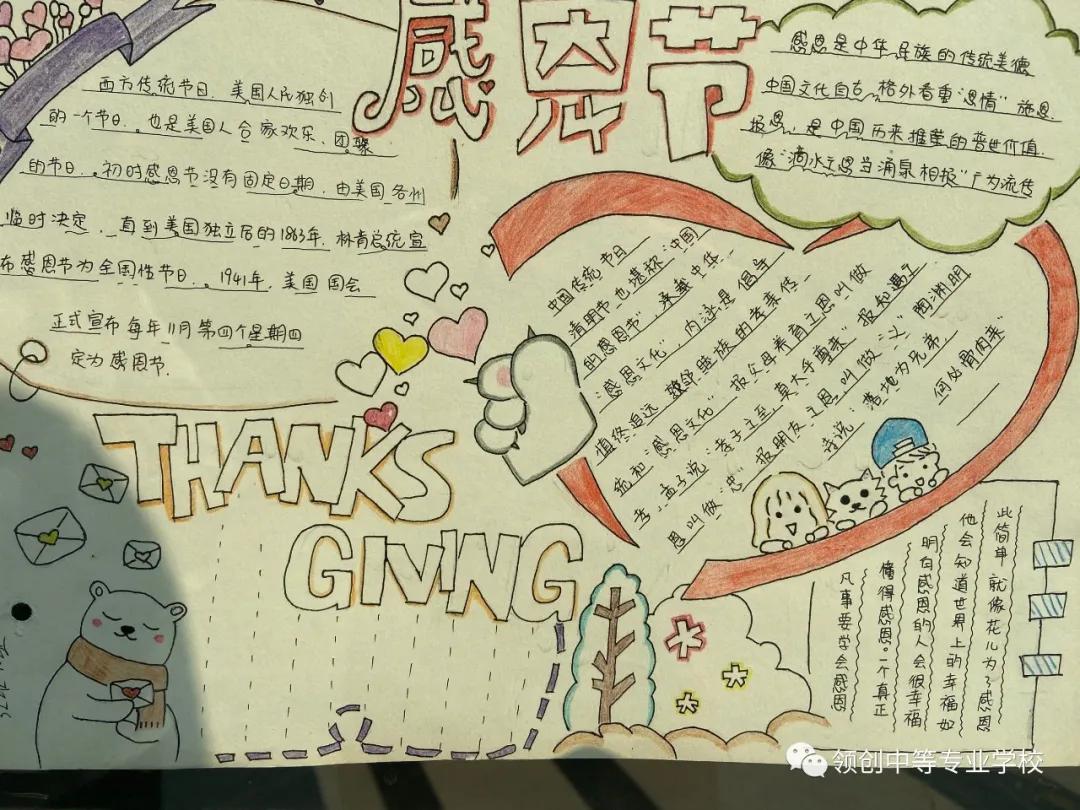 感恩节
西方传统节日.美国人民独创
的一个节日.也是美国人合家欢乐、团聚
的节日.初时感恩节没有固定日期,由美国各州
临时决定.直到美国独立后的1863年,林肯总统宣
布感恩节为全国性节日.1941年,美国国会
正式宣布每年11月第四个星期四
定为感恩节.
感恩是中华民族的传统美德
中国文化自古,格外看重“恩情”施恩
报恩,是中国历来推崇的普世价值.
像“滴水之恩当涌泉相报”广为流传
中国传统节日
清明节也堪称“中国
的感恩节”,承载中华
“感恩文化”,内涵是倡导
慎终追远、敦邻睦族的孝亲传
统和“感恩文化”报父母养育之恩叫做
孝.孟子说“孝子之至,莫大乎尊亲”报知遇之
恩叫做“忠”报朋友之恩叫做“义”陶渊明
诗说:落地为兄弟
何必骨肉亲”
THANKS
GIVING
凡事要学会感恩
懂得感恩。一个真正
明白感恩的人会很幸福
他会知道世界上的幸福如
此简单 就像花儿为了感恩
领创中等专业学校